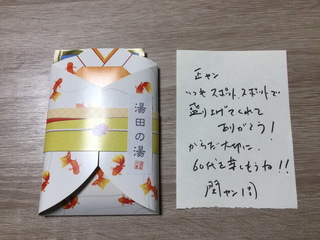 湯田の湯
正ャン
いつもスポットスポットで
盛り上げてくれて
ありがとう!
からだ大切に、
60代を楽しもうね!!